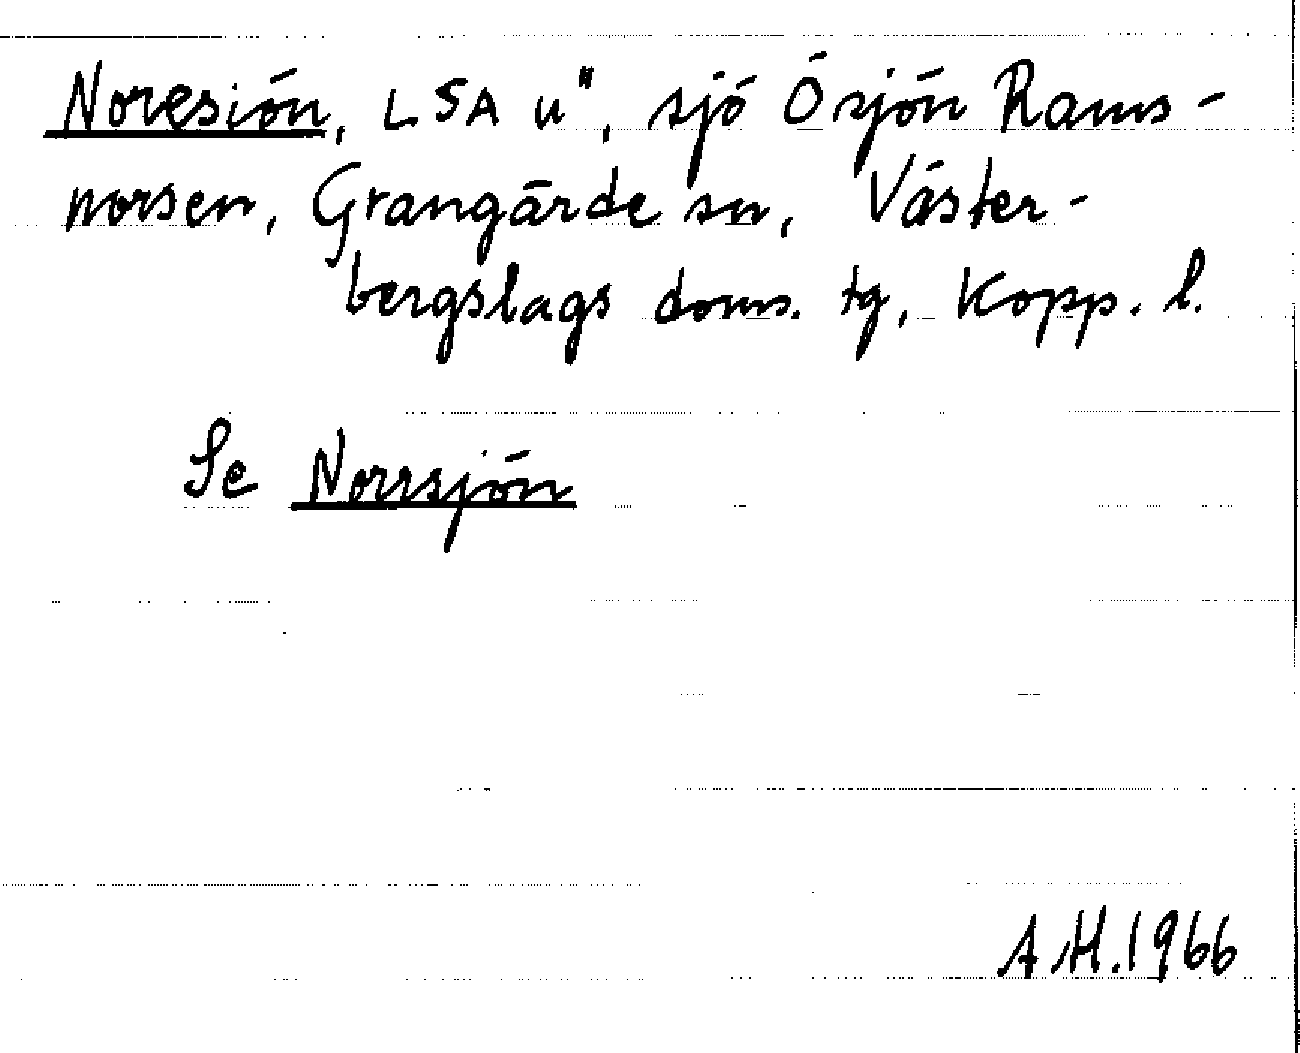 Noresión, LSA u", sjö Örsjön Rams-
norsen, Grangärde sn, Väster-
bergslags doms. tg, Kopp. l.
Se Norrsjön
A.H. 1966